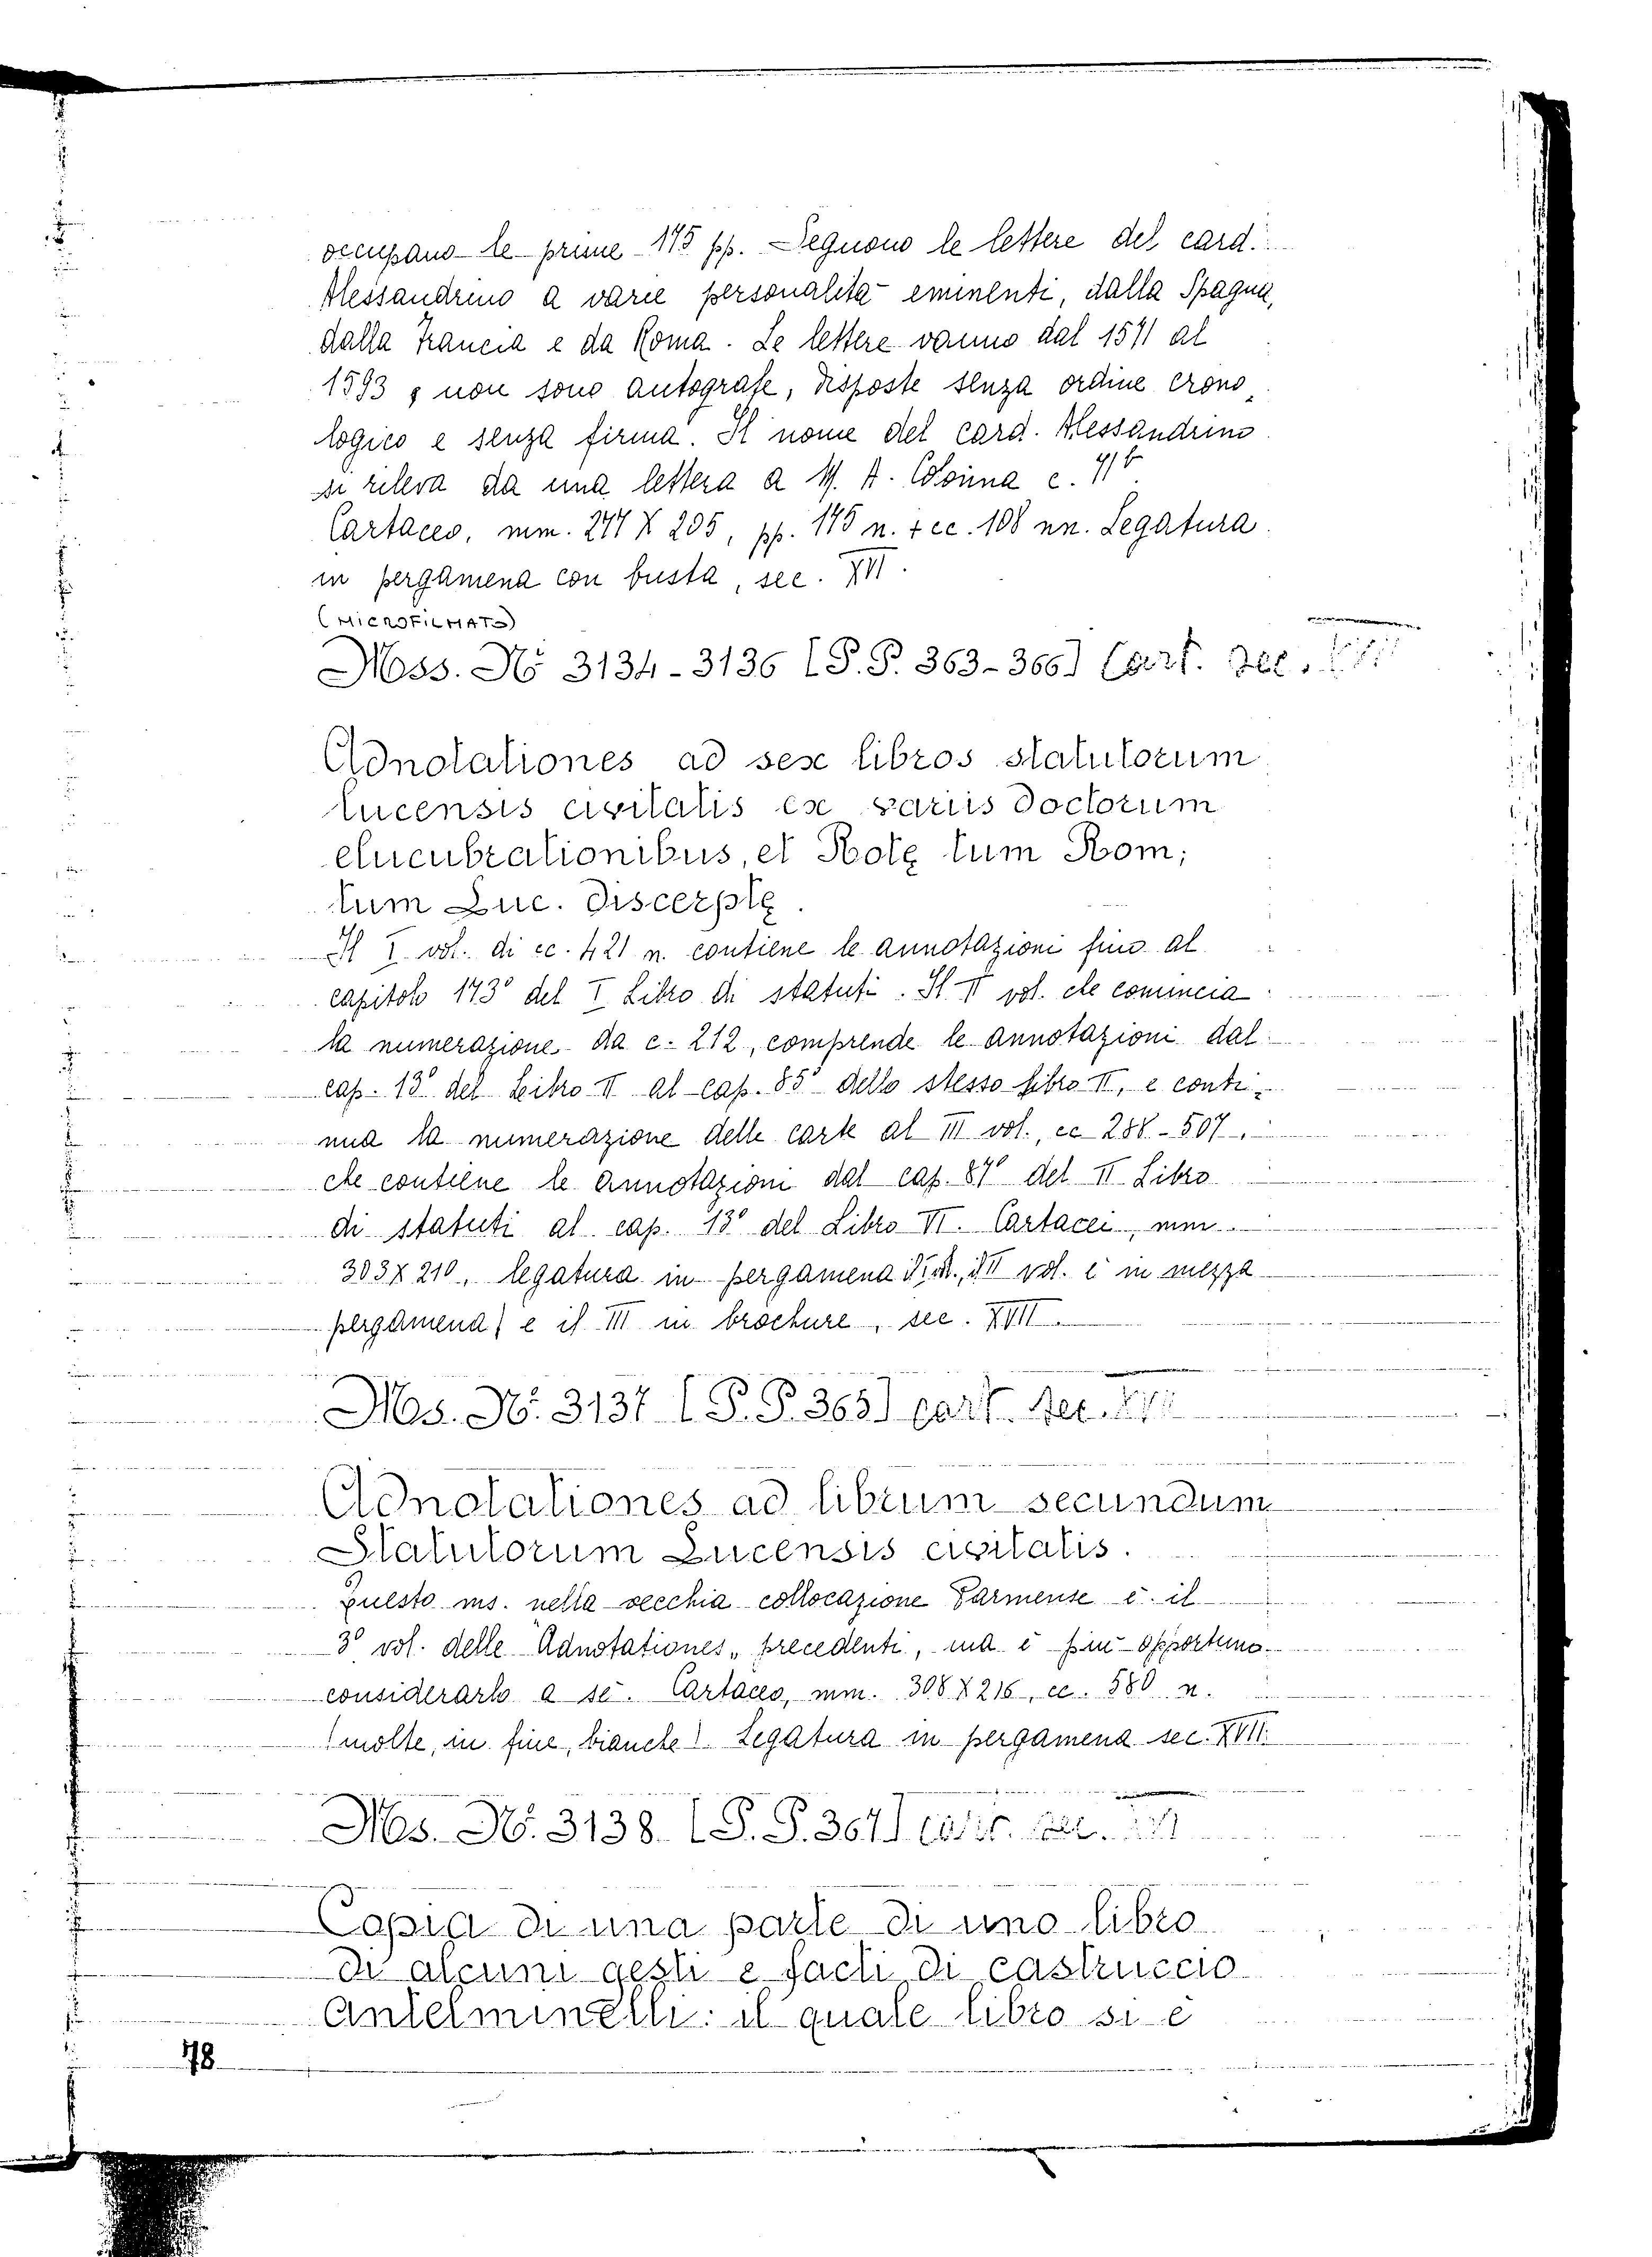 occupano le prime 175 pp. Seguono le lettere del card.
Alessandrino a varie personalità eminenti, dalla Spagna,
dalla Francia e da Roma. Le lettere vanno dal 1571 al
1593, non sono autografe, disposte senza ordine crono
logico e senza firma. Il nome del card. Alessandrino
si rileva da una lettera a M. A. Colonna c. 71b
Cartaceo, mm. 277 X 205, pp. 175 n. + cc. 108 nn. Legatura
in pergamena con busta, sec. XVI.
(MICROFILMATO)
Mss. No 3134-3136 [P. P. 363-366] Cart. sec.
Adnotationes ad sex libros statutorum
lucensis civitatis ex variis doctorum
elucubrationibus, et Rotę tum Rom;
tum Luc. discerptę.
Il I vol. di cc. 421 n. contiene le annotazioni fino al
capitolo 173° del I Libro di statuti. Il II vol. che comincia
la numerazione da c. 212, comprende le annotazioni dal
cap. 13° del Libro II al cap. 85° dello stesso libro II, e conti-
nua la numerazione delle carte al III vol., cc 288-507,
che contiene le annotazioni dal cap. 87° del II Libro
di statuti al cap. 13° del Libro VI. Cartacei, mm
303 X 210, legatura in pergamena il II vol. è in mezza
pergamena) e il III in brochure, sec. XVII.
Ms. No. 3137 [P. P. 365] cart. sec. XVII
Adnotationes ad librum secundum
Statutorum Lucensis civitatis.
Questo ms. nella vecchia collocazione Parmense è il
3° vol. delle "Adnotationes" precedenti, ma è più opportuno
considerarlo a sè. Cartaceo, mm. 308 X 216, cc. 580 n.
(molte, in fine, bianche). Legatura in pergamena sec. XVII.
Ms. No. 3138 [P. P. 367] cart. sec.
Copia di una parte di uno libro
di alcuni gesti e facti di castruccio
antelminelli: il quale libro si è
78